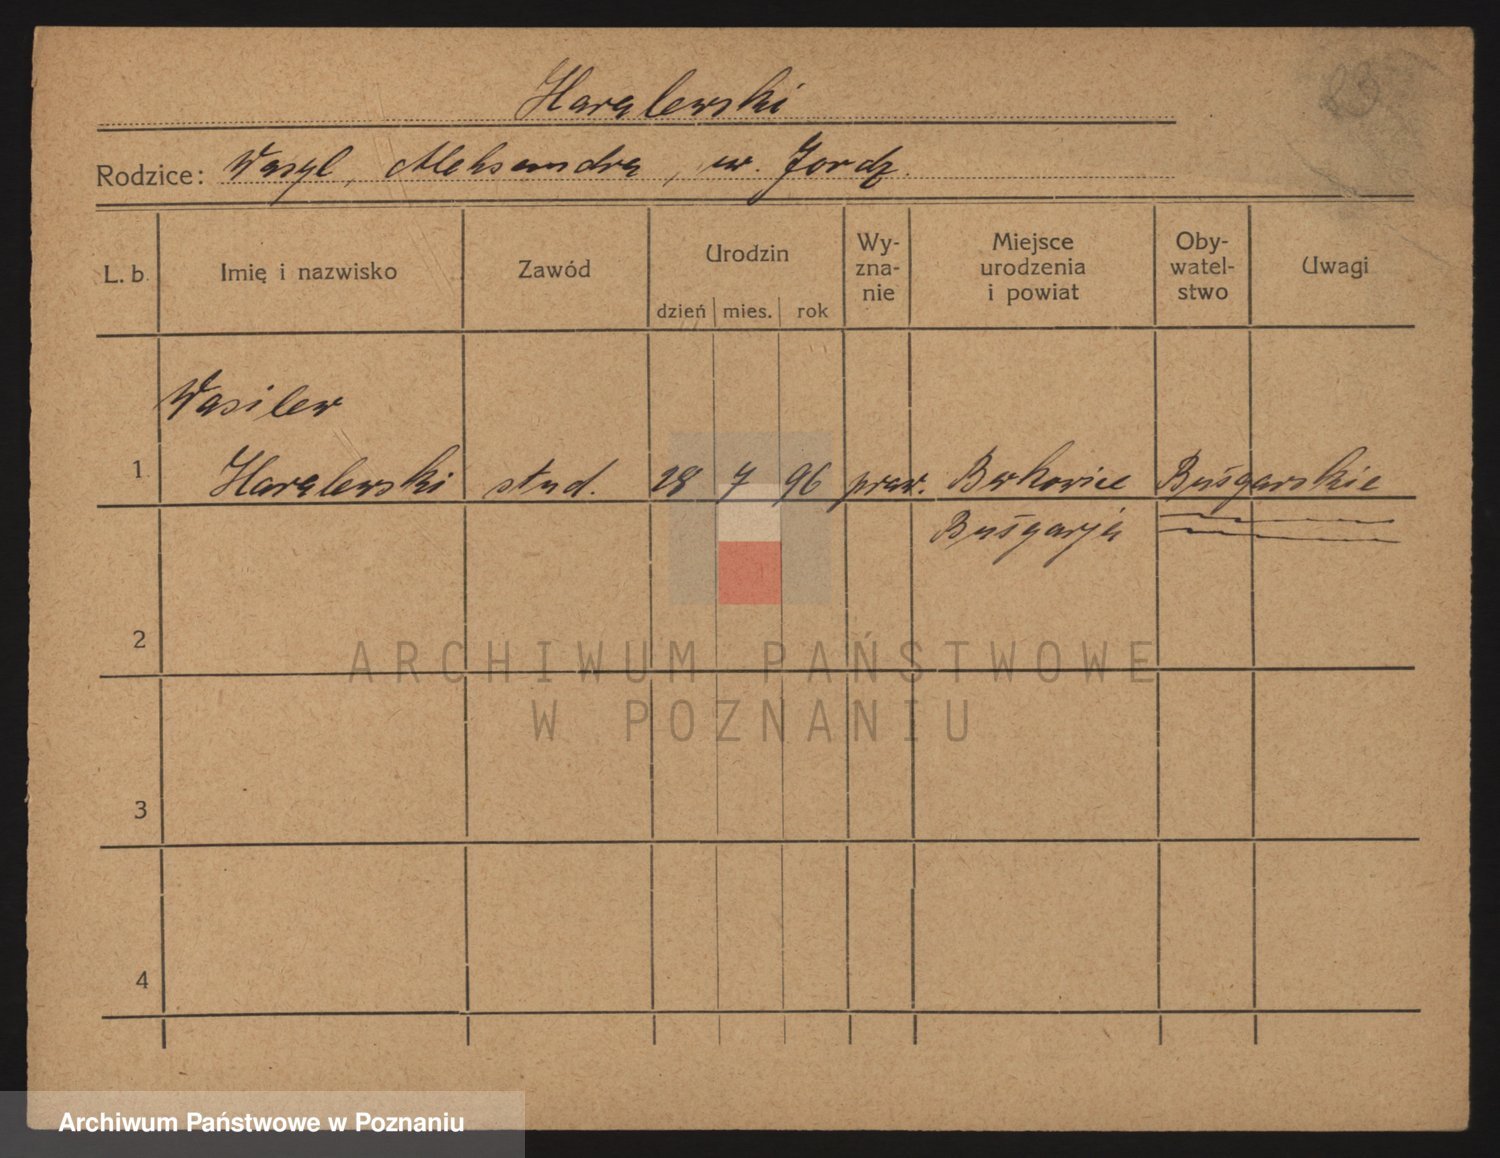 23
Haralewski
Rodzice: Wasyl, Aleksandra, ur. Jordz.
L. b. Imię i nazwisko Zawód Urodzin dzień mies. rok Wy-zna-nie Miejsce urodzenia i powiat Oby-watel-stwo Uwagi
Wasilew
1 Haralewski stud. 28 7 96 praw. Berkowice Bułgarskie
Bułgarja
2
3
4
ARCHIWUM PAŃSTWOWE
W POZNANIU
Archiwum Państwowe w Poznaniu